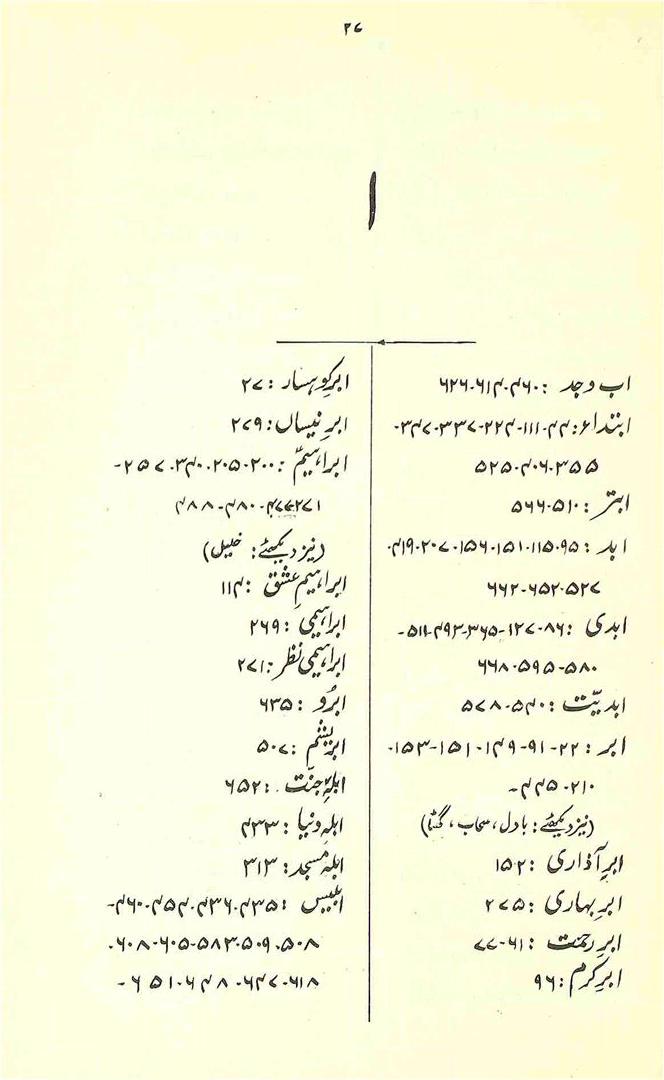 ۲۷
ا
اب و جد : ۴۶۰-۶۱۴-۶۲۶
ابتداء : ۴۴-۱۱۱-۲۲۴-۳۳۷-۳۴۷-
۳۵۵-۴۰۶-۵۲۵
ابتر : ۵۱۰-۵۶۶
ابد : ۹۵-۱۱۵-۱۵۱-۱۵۶-۲۰۷-۴۱۹-
۵۲۷-۶۵۲-۶۶۲
ابدی : ۸۶-۱۲۷-۳۶۵-۴۹۳-۵۱۱-
۵۸۰-۵۹۵-۶۶۸
ابدیّت : ۵۴۰-۵۷۸
ابر : ۲۲-۹۱-۱۴۹-۱۵۱-۱۵۳-
۲۱۰-۴۴۵-
(نیز دیکھئے : بادل، سحاب، گھٹا)
ابرِ آذاری : ۱۵۲
ابرِ بہاری : ۲۷۵
ابرِ رحمت : ۶۱-۷۷
ابرِ کرم : ۹۶
ابرِ کوہسار : ۲۷
ابرِ نیساں : ۲۷۹
ابراہیمؑ : ۲۰۰-۲۰۵-۲۴۰-۲۵۷-
۲۷۱-۴۸۰-۴۸۸
(نیز دیکھئے : خلیل)
ابراہیمِ عشق : ۱۱۴
ابراہیمی : ۲۶۹
ابراہیمی نظر : ۲۷۱
ابرُو : ۶۳۵
ابریشم : ۵۰۷
ابلہِ جنّت : ۶۵۲
ابلہِ دنیا : ۴۳۳
ابلہِ مسجد : ۳۱۳
ابلیس : ۴۳۵-۴۳۶-۴۵۴-۴۶۰-
۵۰۸-۵۰۹-۵۸۳-۶۰۵-۶۰۸-
۶۱۸-۶۴۷-۶۴۸-۶۵۱-